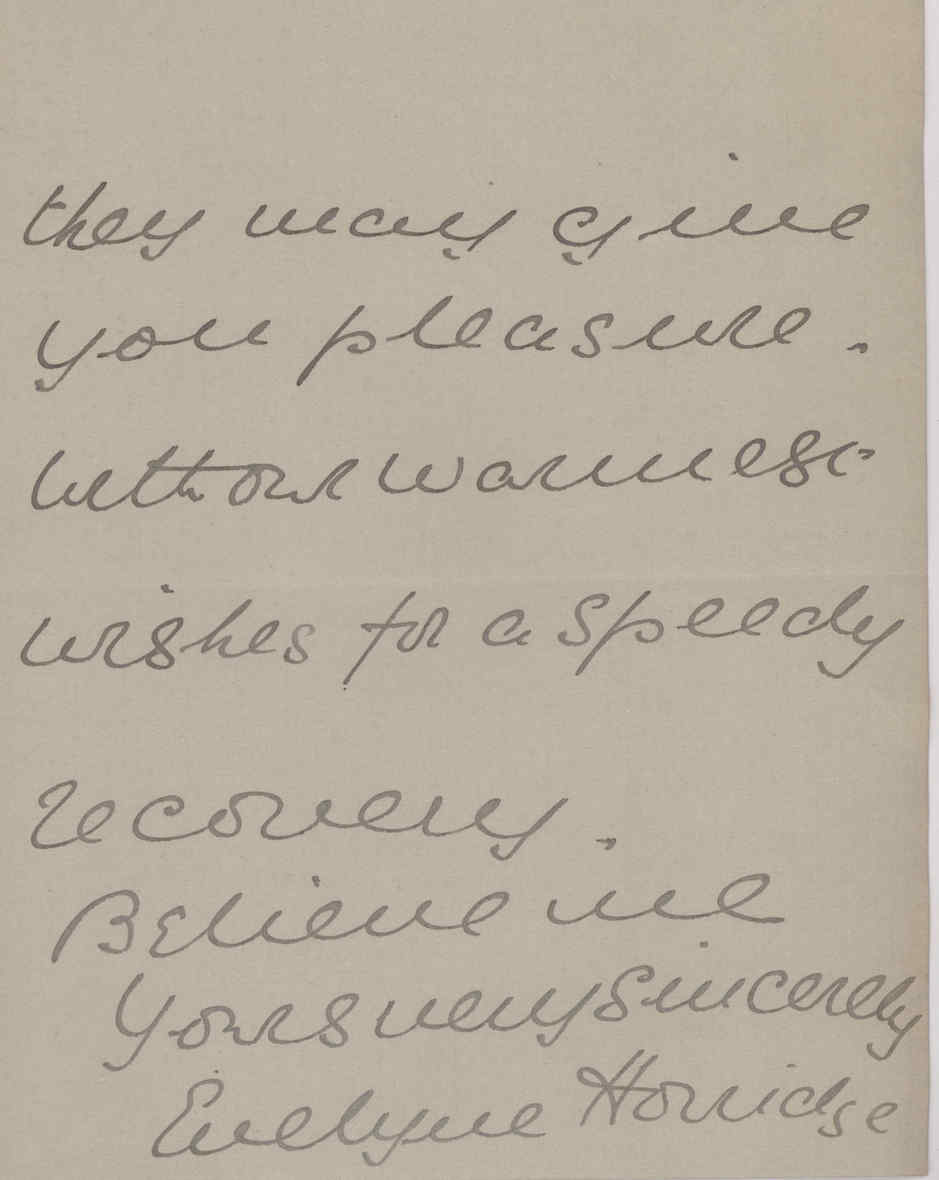 they may give
you pleasure.
With our warmest
wishes for a speedy
recovery.
Believe me
Yours very sincerely
Evelyne Horridge